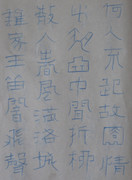 誰家玉笛暗飛聲
散入春風滿洛城
此夜曲中聞折柳
何人不起故園情